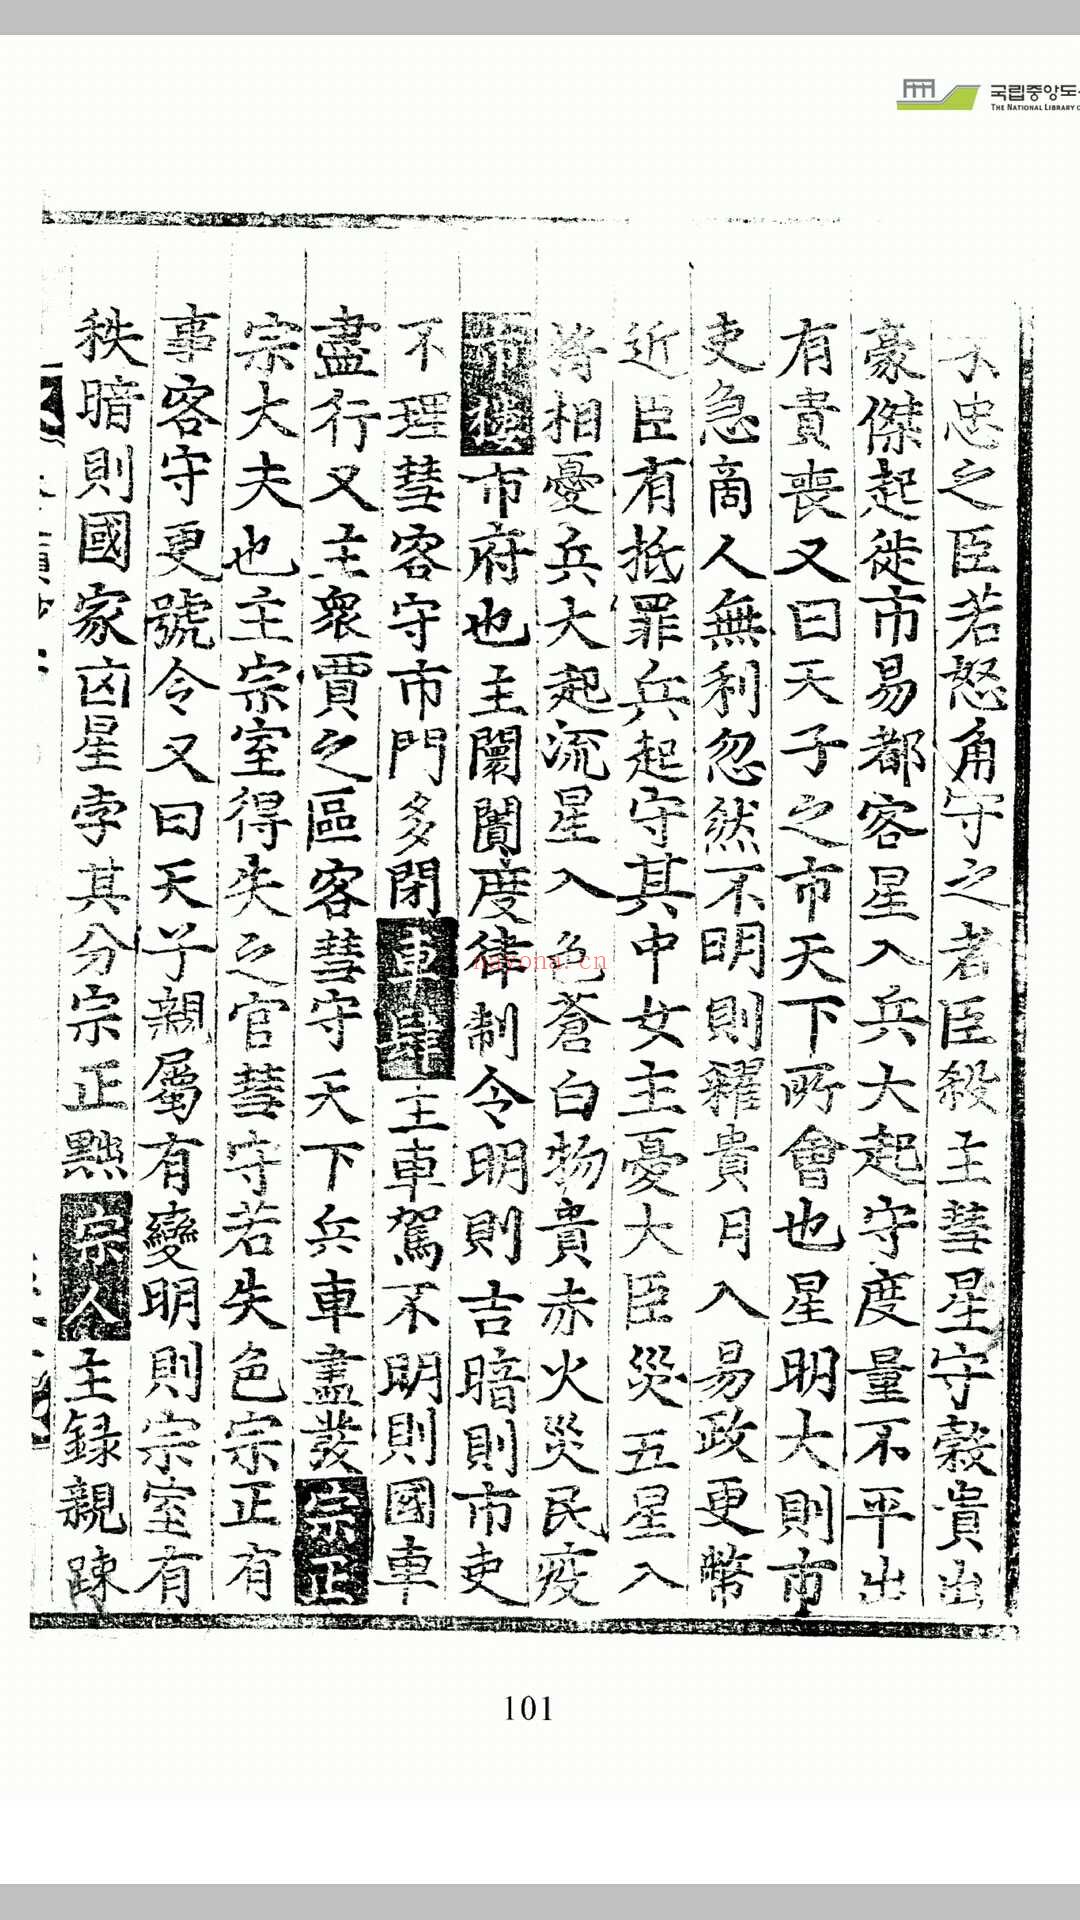 국립중앙도
THE NATIONAL LIBRARY O
不忠之臣若怒角守之者臣殺主彗星守穀貴出
豪傑起徙市易都客星入兵大起守度量不平出
有貴喪又曰天子之市天下所會也星明大則市
吏急商人無利忽然不明則糴貴月入易政更幣
近臣有抵罪兵起守其中女主憂大臣災五星入
將相憂兵大起流星入色蒼白物貴赤火災民疫
市樓市府也主闤闠度律制令明則吉暗則市吏
不理彗客守市門多閉車肆主車駕不明則國車
盡行又主衆賈之區客彗守天下兵車盡發宗正
宗大夫也主宗室得失之官彗守若失色宗正有
事客守更號令又曰天子親屬有變明則宗室有
秩暗則國家凶星孛其分宗正黜宗人主録親踈
nayona.cn
101